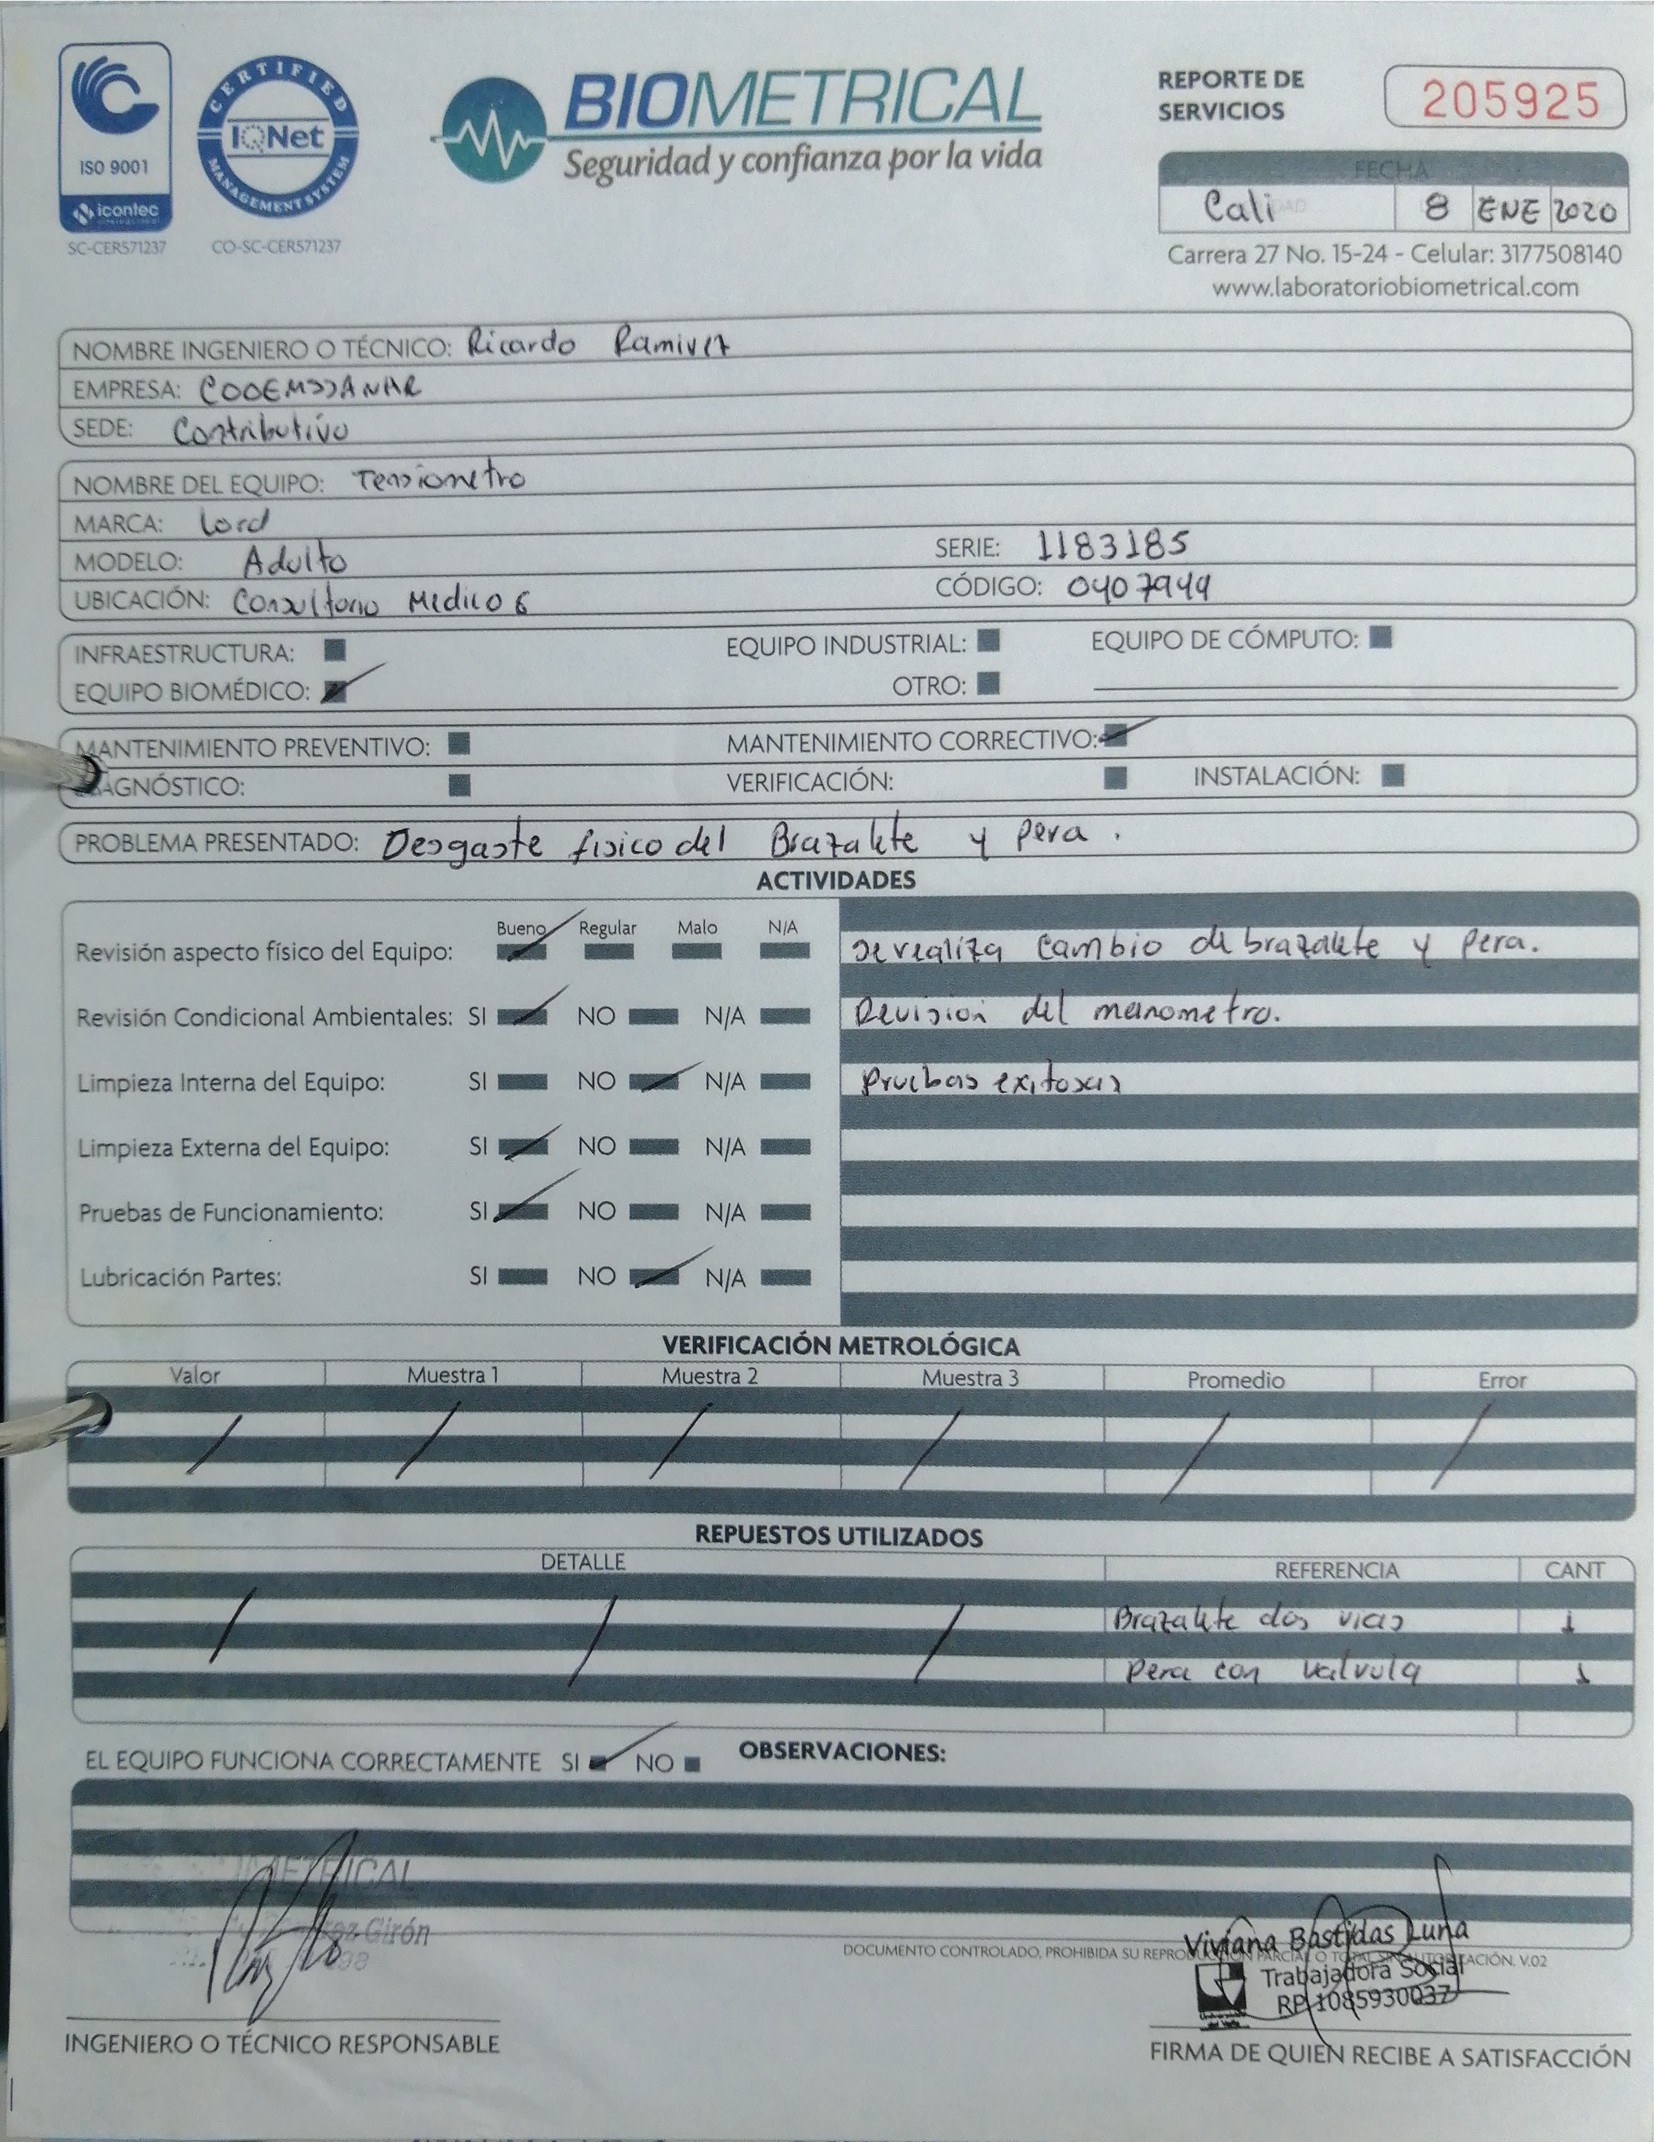 CERTIFIED
IQNet
MANAGEMENT SYSTEM
ISO 9001
icontec
SC-CER571237
CO-SC-CER571237
BIOMETRICAL
Seguridad y confianza por la vida
REPORTE DE
SERVICIOS
205925
FECHA
Cali 8 ENE 2020
Carrera 27 No. 15-24 - Celular: 3177508140
www.laboratoriobiometrical.com
NOMBRE INGENIERO O TÉCNICO: Ricardo Ramirez
EMPRESA: COOEMSSANAR
SEDE: Contributivo
NOMBRE DEL EQUIPO: Tensiometro
MARCA: Lord
MODELO: Adulto SERIE: 1183185
UBICACIÓN: Consultorio Medico 6 CÓDIGO: 0407944
INFRAESTRUCTURA: EQUIPO INDUSTRIAL: EQUIPO DE CÓMPUTO:
EQUIPO BIOMÉDICO: OTRO:
MANTENIMIENTO PREVENTIVO: MANTENIMIENTO CORRECTIVO:
DIAGNÓSTICO: VERIFICACIÓN: INSTALACIÓN:
PROBLEMA PRESENTADO: Desgaste fisico del Brazalete y pera.
ACTIVIDADES
Bueno Regular Malo N/A
Revisión aspecto físico del Equipo: Se realiza cambio de brazalete y pera.
Revisión Condicional Ambientales: SI NO N/A Revision del manometro.
Limpieza Interna del Equipo: SI NO N/A Pruebas exitosas
Limpieza Externa del Equipo: SI NO N/A
Pruebas de Funcionamiento: SI NO N/A
Lubricación Partes: SI NO N/A
VERIFICACIÓN METROLÓGICA
Valor Muestra 1 Muestra 2 Muestra 3 Promedio Error
/ / / / / /
REPUESTOS UTILIZADOS
DETALLE REFERENCIA CANT
/ / / Brazalete dos vias 1
Pera con valvula 1
EL EQUIPO FUNCIONA CORRECTAMENTE SI NO OBSERVACIONES:
METRICAL
Girón
Viviana Bastidas Luna
DOCUMENTO CONTROLADO, PROHIBIDA SU REPRODUCCIÓN PARCIAL O TOTAL SIN AUTORIZACIÓN. V.02
Trabajadora Social
RP 1085930037
INGENIERO O TÉCNICO RESPONSABLE
FIRMA DE QUIEN RECIBE A SATISFACCIÓN